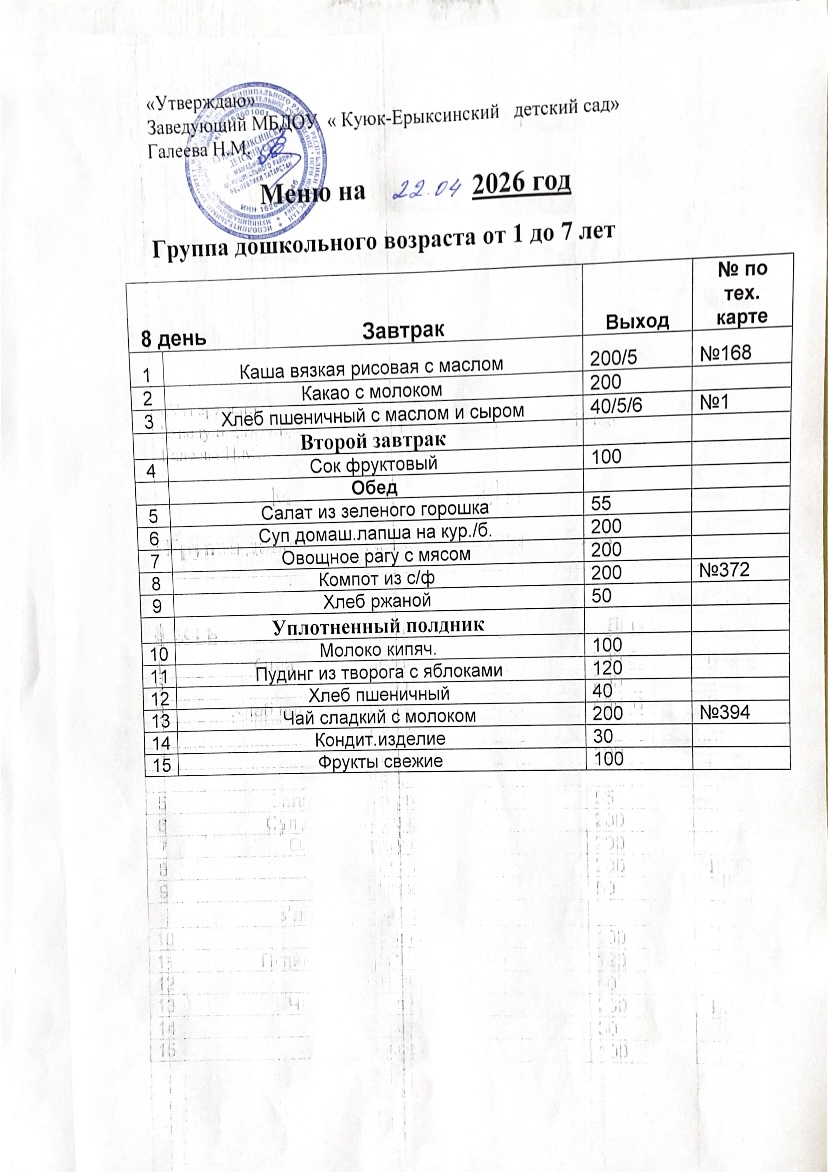 «Утверждаю»
Заведующий МБДОУ « Куюк-Ерыксинский детский сад»
Галеева Н.М.
Меню на 22.04 2026 год
Группа дошкольного возраста от 1 до 7 лет
8 день Завтрак Выход № по тех. карте
1 Каша вязкая рисовая с маслом 200/5 №168
2 Какао с молоком 200
3 Хлеб пшеничный с маслом и сыром 40/5/6 №1
Второй завтрак
4 Сок фруктовый 100
Обед
5 Салат из зеленого горошка 55
6 Суп домаш.лапша на кур./б. 200
7 Овощное рагу с мясом 200
8 Компот из с/ф 200 №372
9 Хлеб ржаной 50
Уплотненный полдник
10 Молоко кипяч. 100
11 Пудинг из творога с яблоками 120
12 Хлеб пшеничный 40
13 Чай сладкий с молоком 200 №394
14 Кондит.изделие 30
15 Фрукты свежие 100